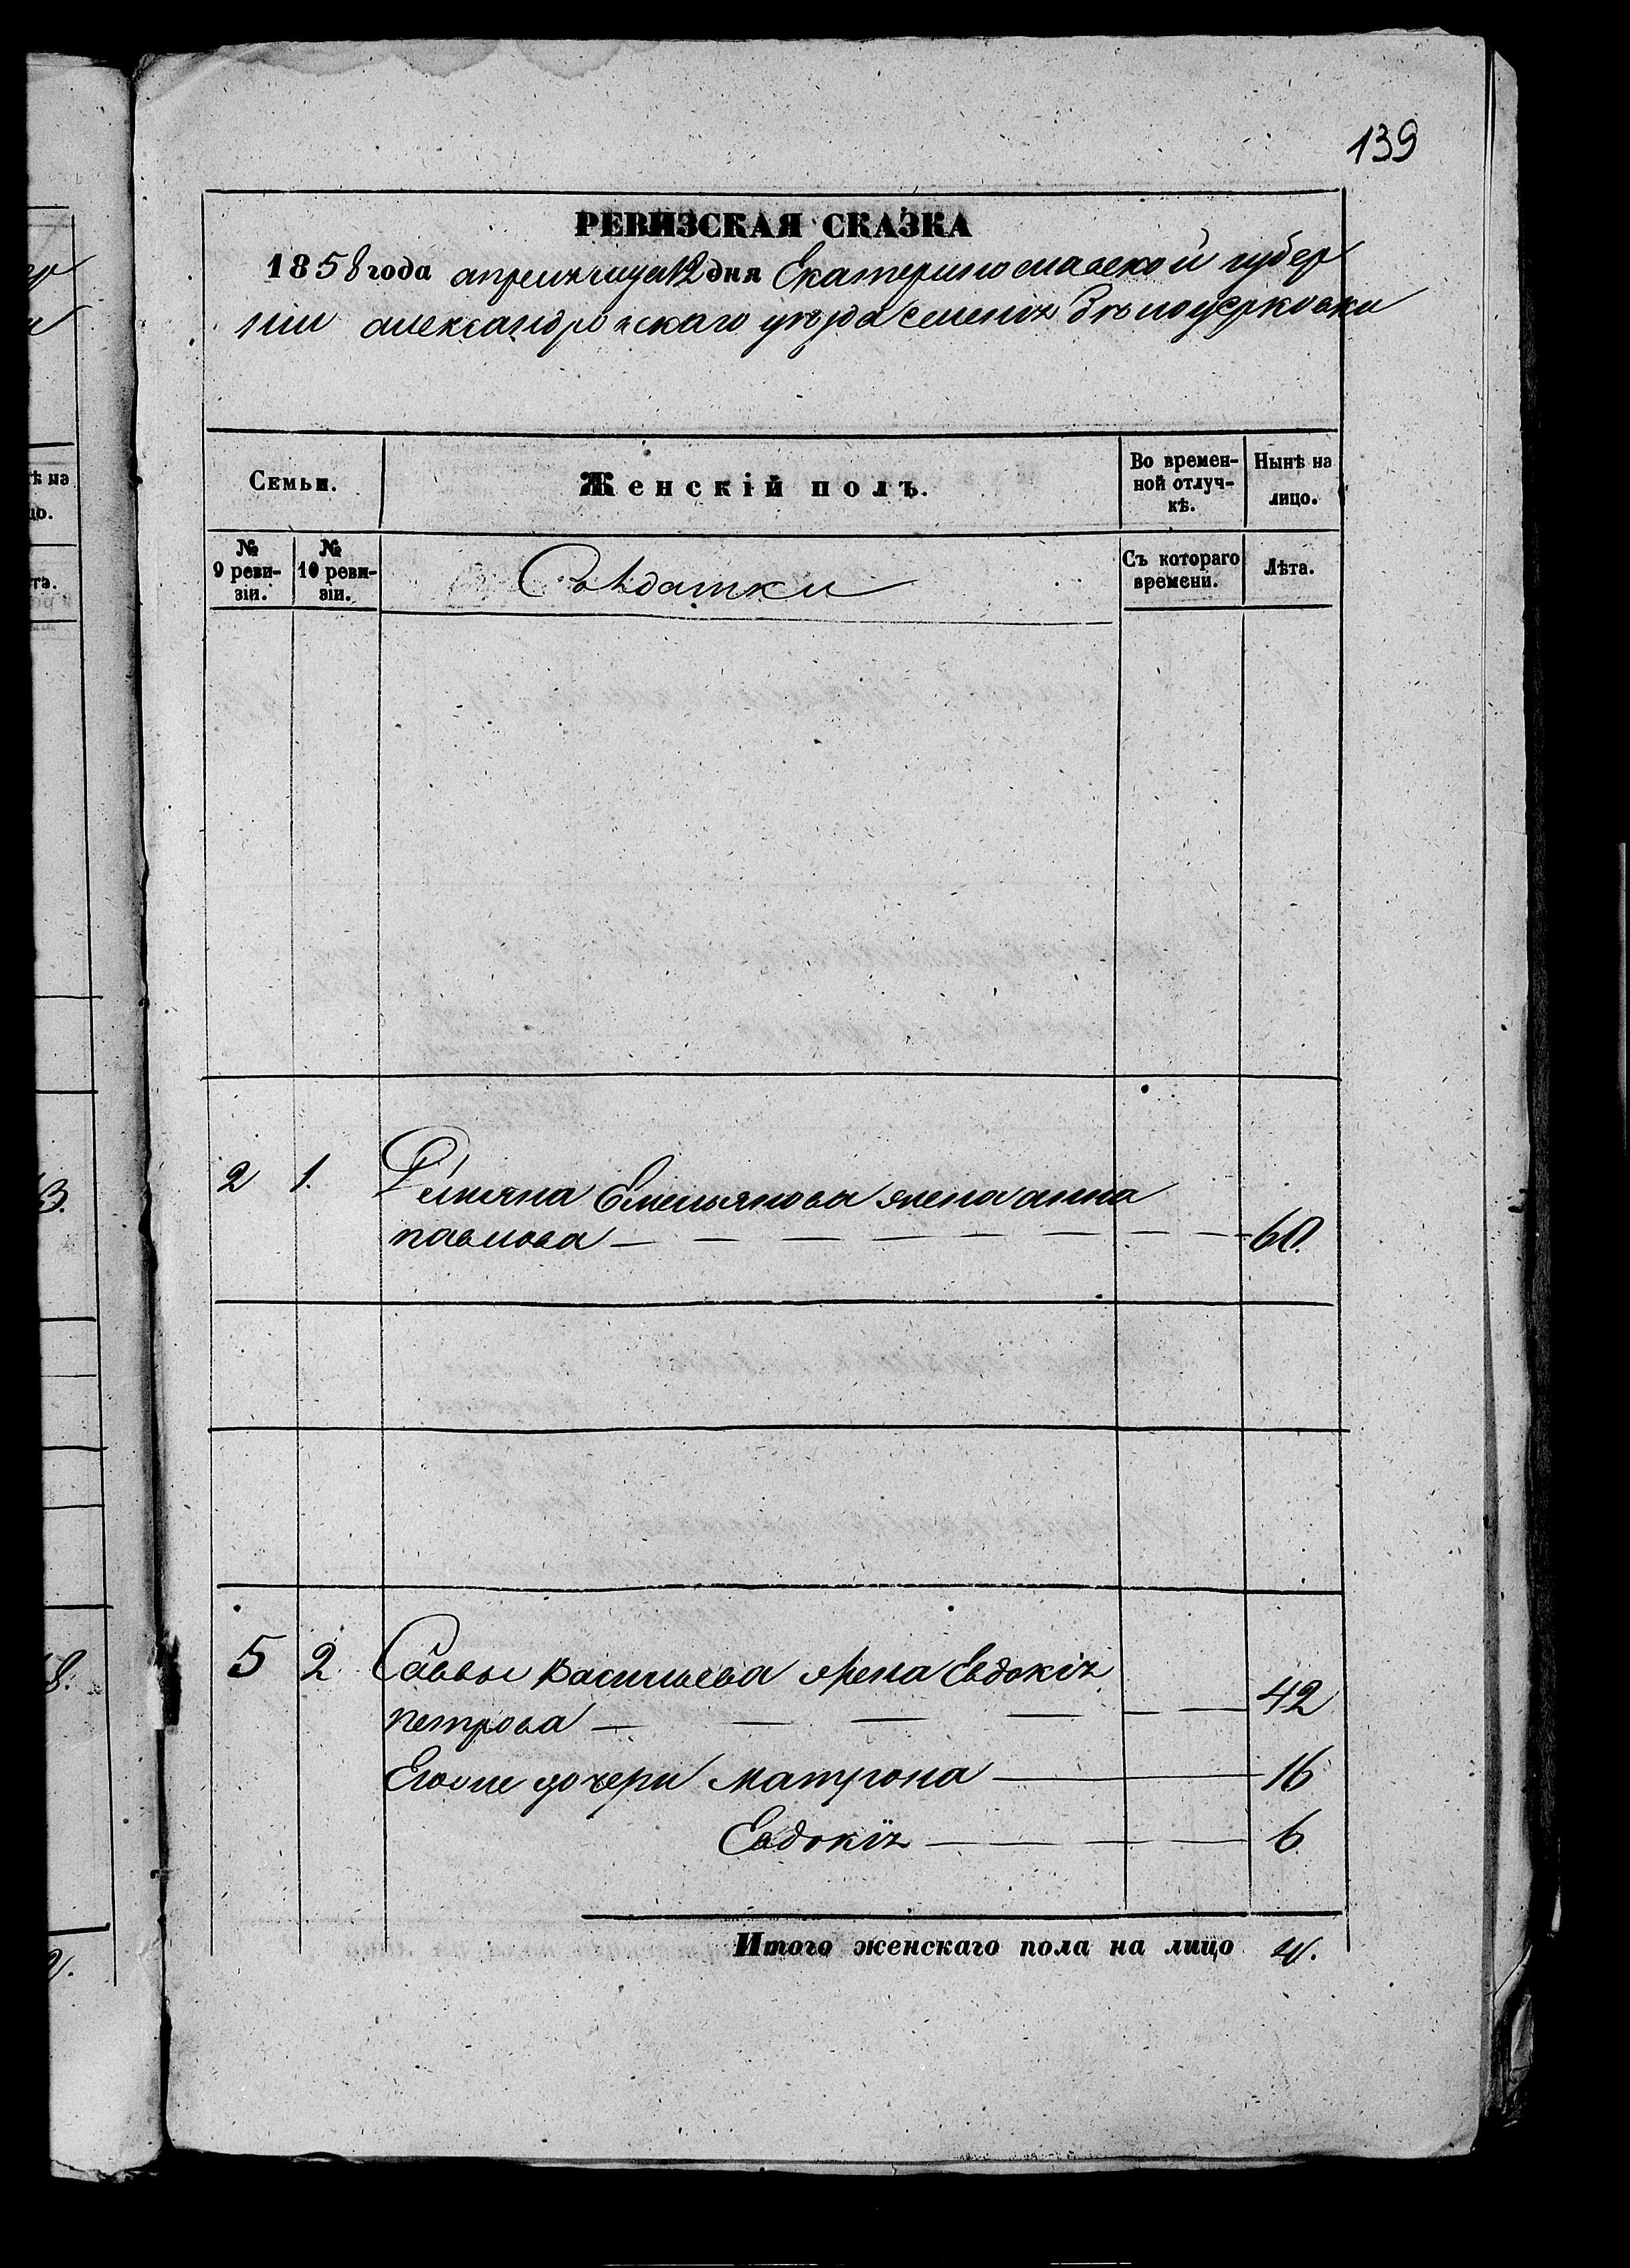 139
РЕВИЗСКАЯ СКАЗКА
1858 года апреля месяца 12 дня Екатеринославской губер
нии александровскаго уезда селения Белоцерковки
Семьи.
Женскій полъ.
Во времен-
ной отлуч-
кѣ.
Нынѣ на
лицо.
№
9 реви-
зіи.
№
10 реви-
зіи.
Солдатки
Съ котораго
времени.
Лѣта.
2 1. Емельянова жена анна
павлова 60.
5 2 Саввы Васильева жена Евдокія
петрова 42
Его же дочери Матрона 16
Евдокія 6
Итого женскаго пола на лицо 4.